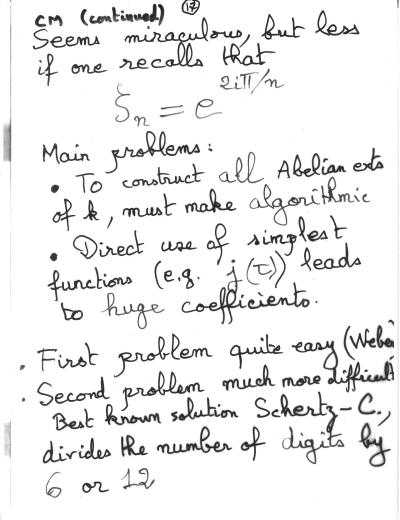 CM (continued) 17
Seems miraculous, but less
if one recalls that
ζn = e^{2iπ/n}
Main problems:
• To construct all Abelian exts
of k, must make algorithmic
• Direct use of simplest
functions (e.g. j(τ)) leads
to huge coefficients.
• First problem quite easy (Weber
• Second problem much more difficult
Best known solution Schertz-C.,
divides the number of digits by
6 or 12